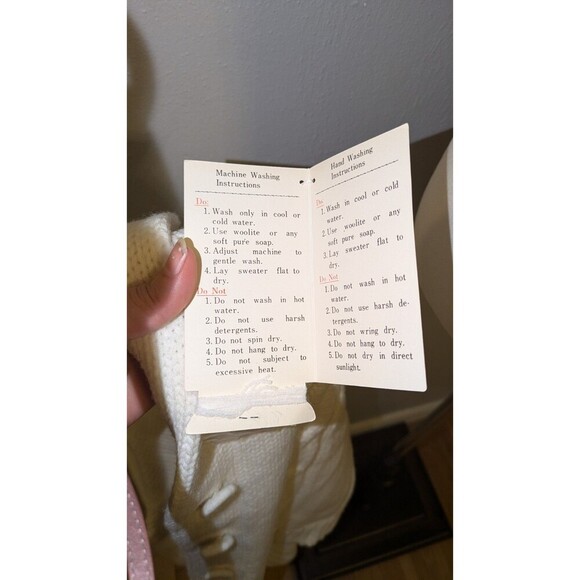 Machine Washing
Instructions
Do:
1. Wash only in cool or
cold water.
2. Use woolite or any
soft pure soap.
3. Adjust machine to
gentle wash.
4. Lay sweater flat to
dry.
Do Not
1. Do not wash in hot
water.
2. Do not use harsh
detergents.
3. Do not spin dry.
4. Do not hang to dry.
5. Do not subject to
excessive heat.
Hand Washing
Instructions
Do
1. Wash in cool or cold
water.
2. Use woolite or any
soft pure soap.
3. Lay sweater flat to
dry.
Do Not
1. Do not wash in hot
water.
2. Do not use harsh de-
tergents.
3. Do not wring dry.
4. Do not hang to dry.
5. Do not dry in direct
sunlight.